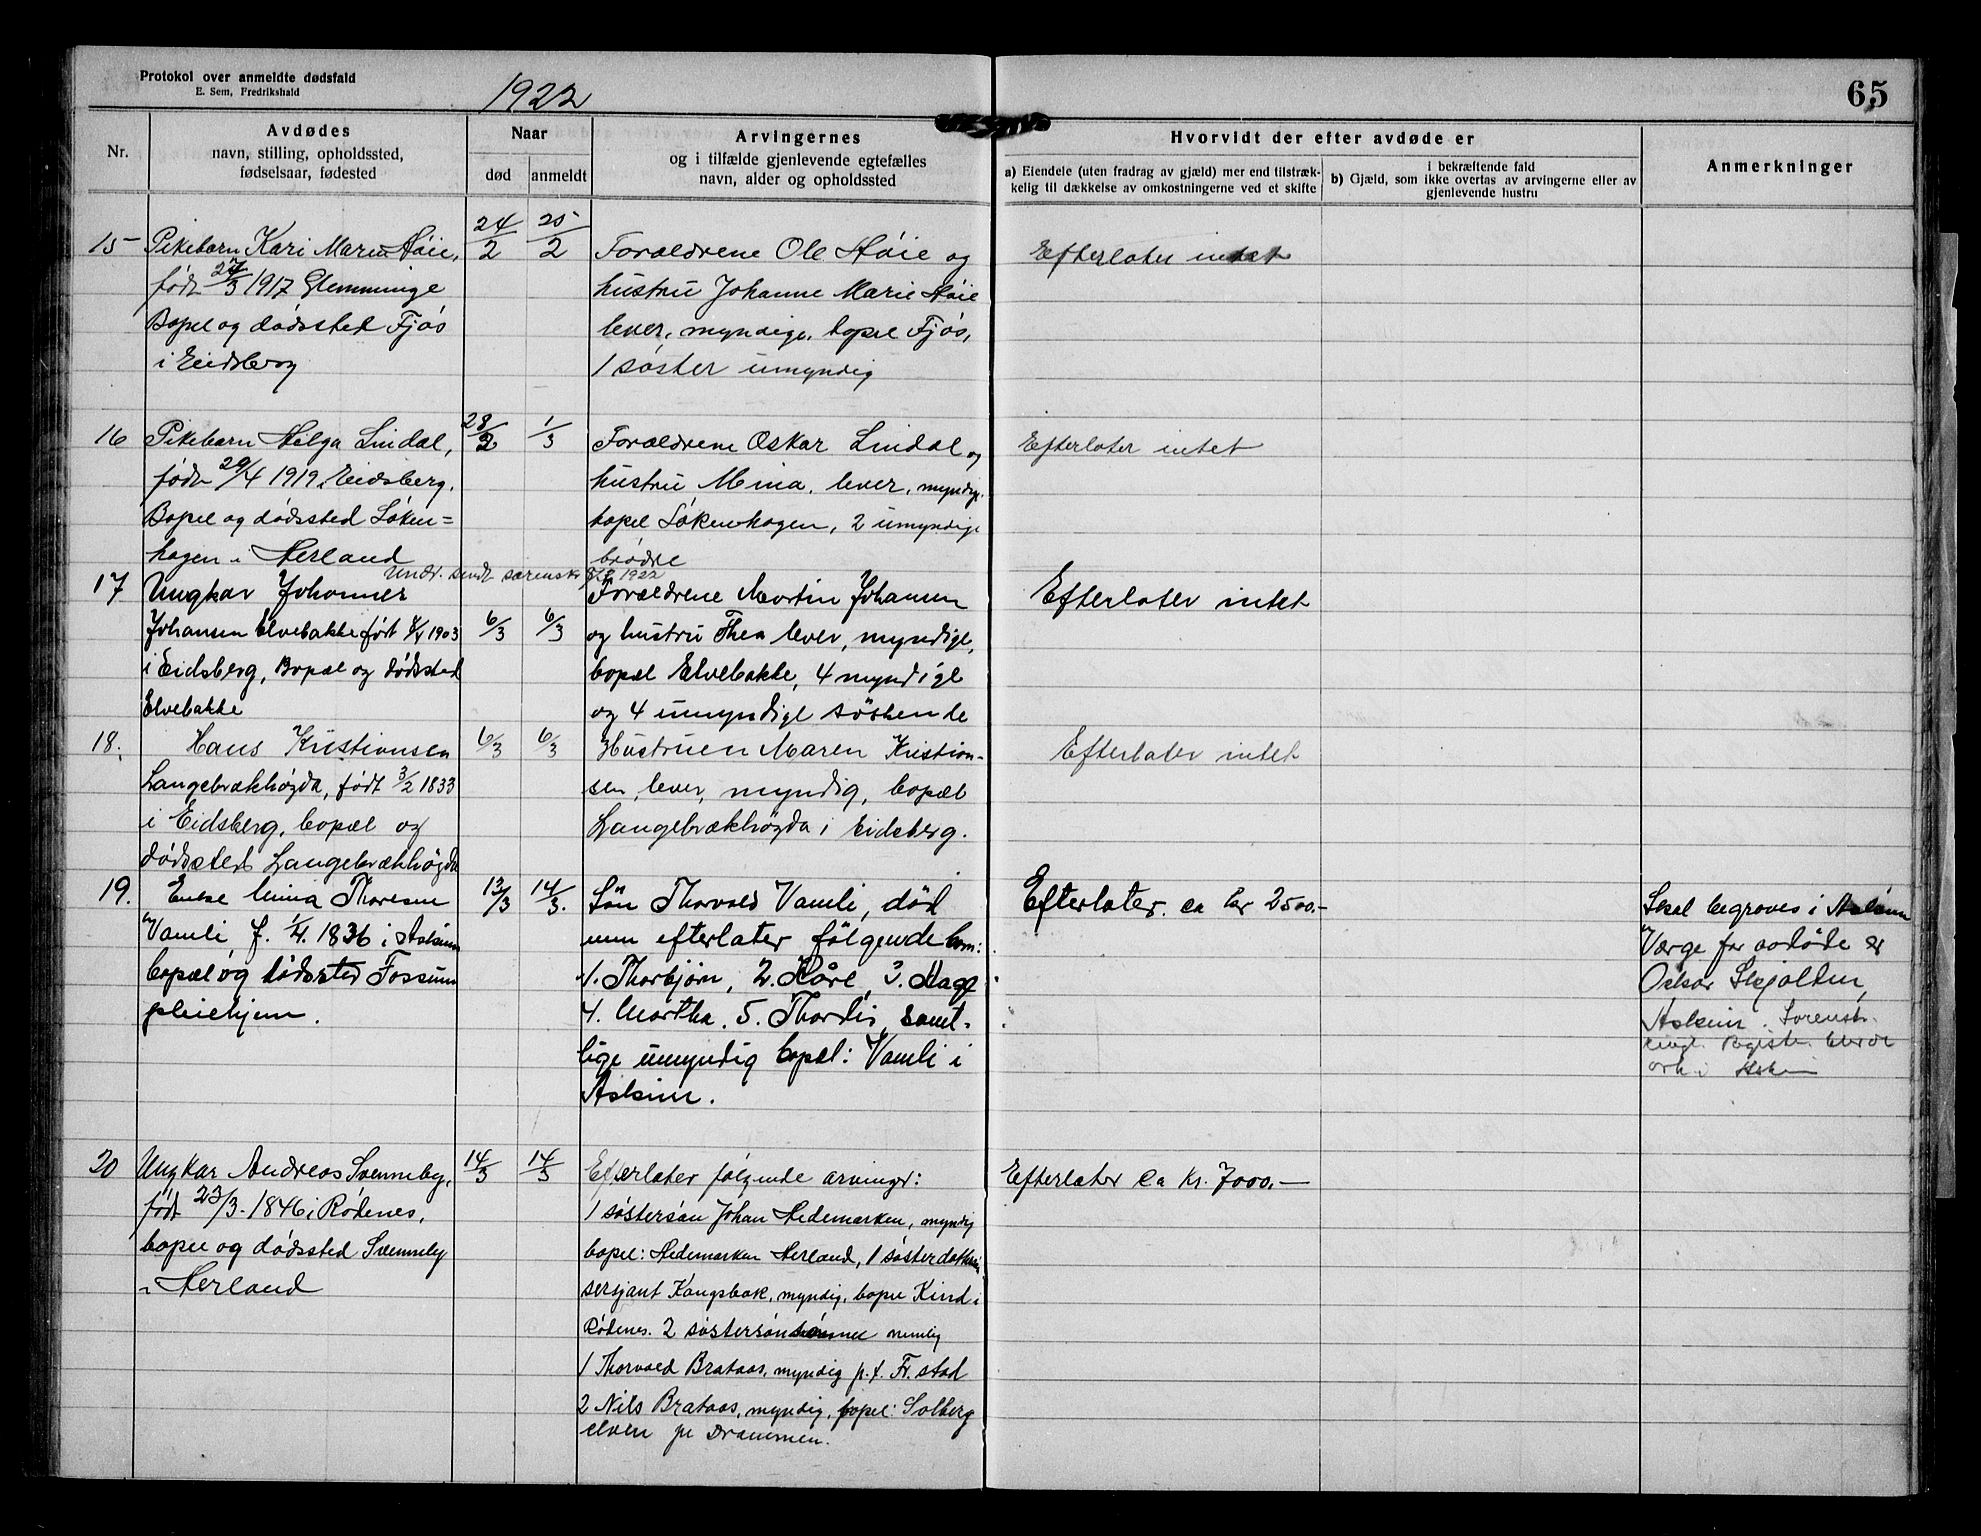 Protokol over anmeldte dødsfald
E. Sem, Fredrikshald
1922
65
Nr.
Avdødes
navn, stilling, opholdssted,
fødselsaar, fødested
Naar
død
anmeldt
Arvingernes
og i tilfælde gjenlevende egtefælles
navn, alder og opholdssted
Hvorvidt der efter avdøde er
a) Eiendele (uten fradrag av gjæld) mer end tilstræk-
kelig til dækkelse av omkostningerne ved et skifte
i bekræftende fald
b) Gjæld, som ikke overtas av arvingerne eller av
gjenlevende hustru
Anmerkninger
15
Pikebarn Kari Marie Høie,
født 27/3 1917 Glemminge
Bopel og dødssted Fjøs
i Eidsberg
24/2
25/2
Forældrene Ole Høie og
hustru Johanne Marie Høie
lever, myndige, bopel Fjøs,
1 søster umyndig
Efterlater intet
16
Pikebarn Helga Lindal,
født 20/4 1919, Eidsberg.
Bopel og dødssted Løken=
hagen i Herland
28/2
1/3
Forældrene Oskar Lindal og
hustru Mina, lever, myndige,
bopel Løkenhagen, 2 umyndige
brødre
Efterlater intet
Undr. sendt sorenskr. 1922
17
Ungkar Johannes
Johansen Elvebakke født 1903
i Eidsberg, Bopæl og dødssted
Elvebakke
6/3
6/3
Forældrene Martin Johansen
og hustru Thea lever, myndige,
bopæl Elvebakke, 4 myndige
og 4 umyndige søskende
Efterlater intet
18.
Hans Kristiansen
Langebrækhøgda, født 3/2 1833
i Eidsberg, bopæl og
dødssted Langebrækhøgda
6/3
6/3
Hustruen Maren Kristian-
sen, lever, myndig, bopæl
Langebrækhøgda i Eidsberg.
Efterlater intet
19.
Enke Mina Thoresen
Vamli f. 1/4. 1836 i Askim
bopæl og dødssted Fossum
pleiehjem.
13/3
14/3.
Søn Thorvald Vamli, død
men efterlater følgende barn:
1. Thorbjørn, 2. Kåre, 3. Aage
4. Martha. 5. Thordis, samt-
lige umyndig bopæl: Vamli i
Askim.
Efterlater ca kr 2500.-
Skal begraves i Askim
Værge for avdøde er
Oskar Skjolden,
Askim. Sorenskr.
20
Ungkar Andreas Svenneby,
født 23/3. 1846 i Rødenes,
bopel og dødssted Svenneby
i Herland
14/3
14/3
Efterlater følgende arvinger:
1 søstersøn Johan Hedemarken, myndig
bopel: Hedemarken Herland, 1 søsterdatter
sersjant Kongsbak, myndig, bopel Kind i
Rødenes. 2 søstersønsønner nemlig
1 Thorvald Brataas, myndig p.t. Fr.stad
2 Nils Brataas, myndig, bopel: Solberg
elven pr Drammen.
Efterlater ca Kr. 7000.-